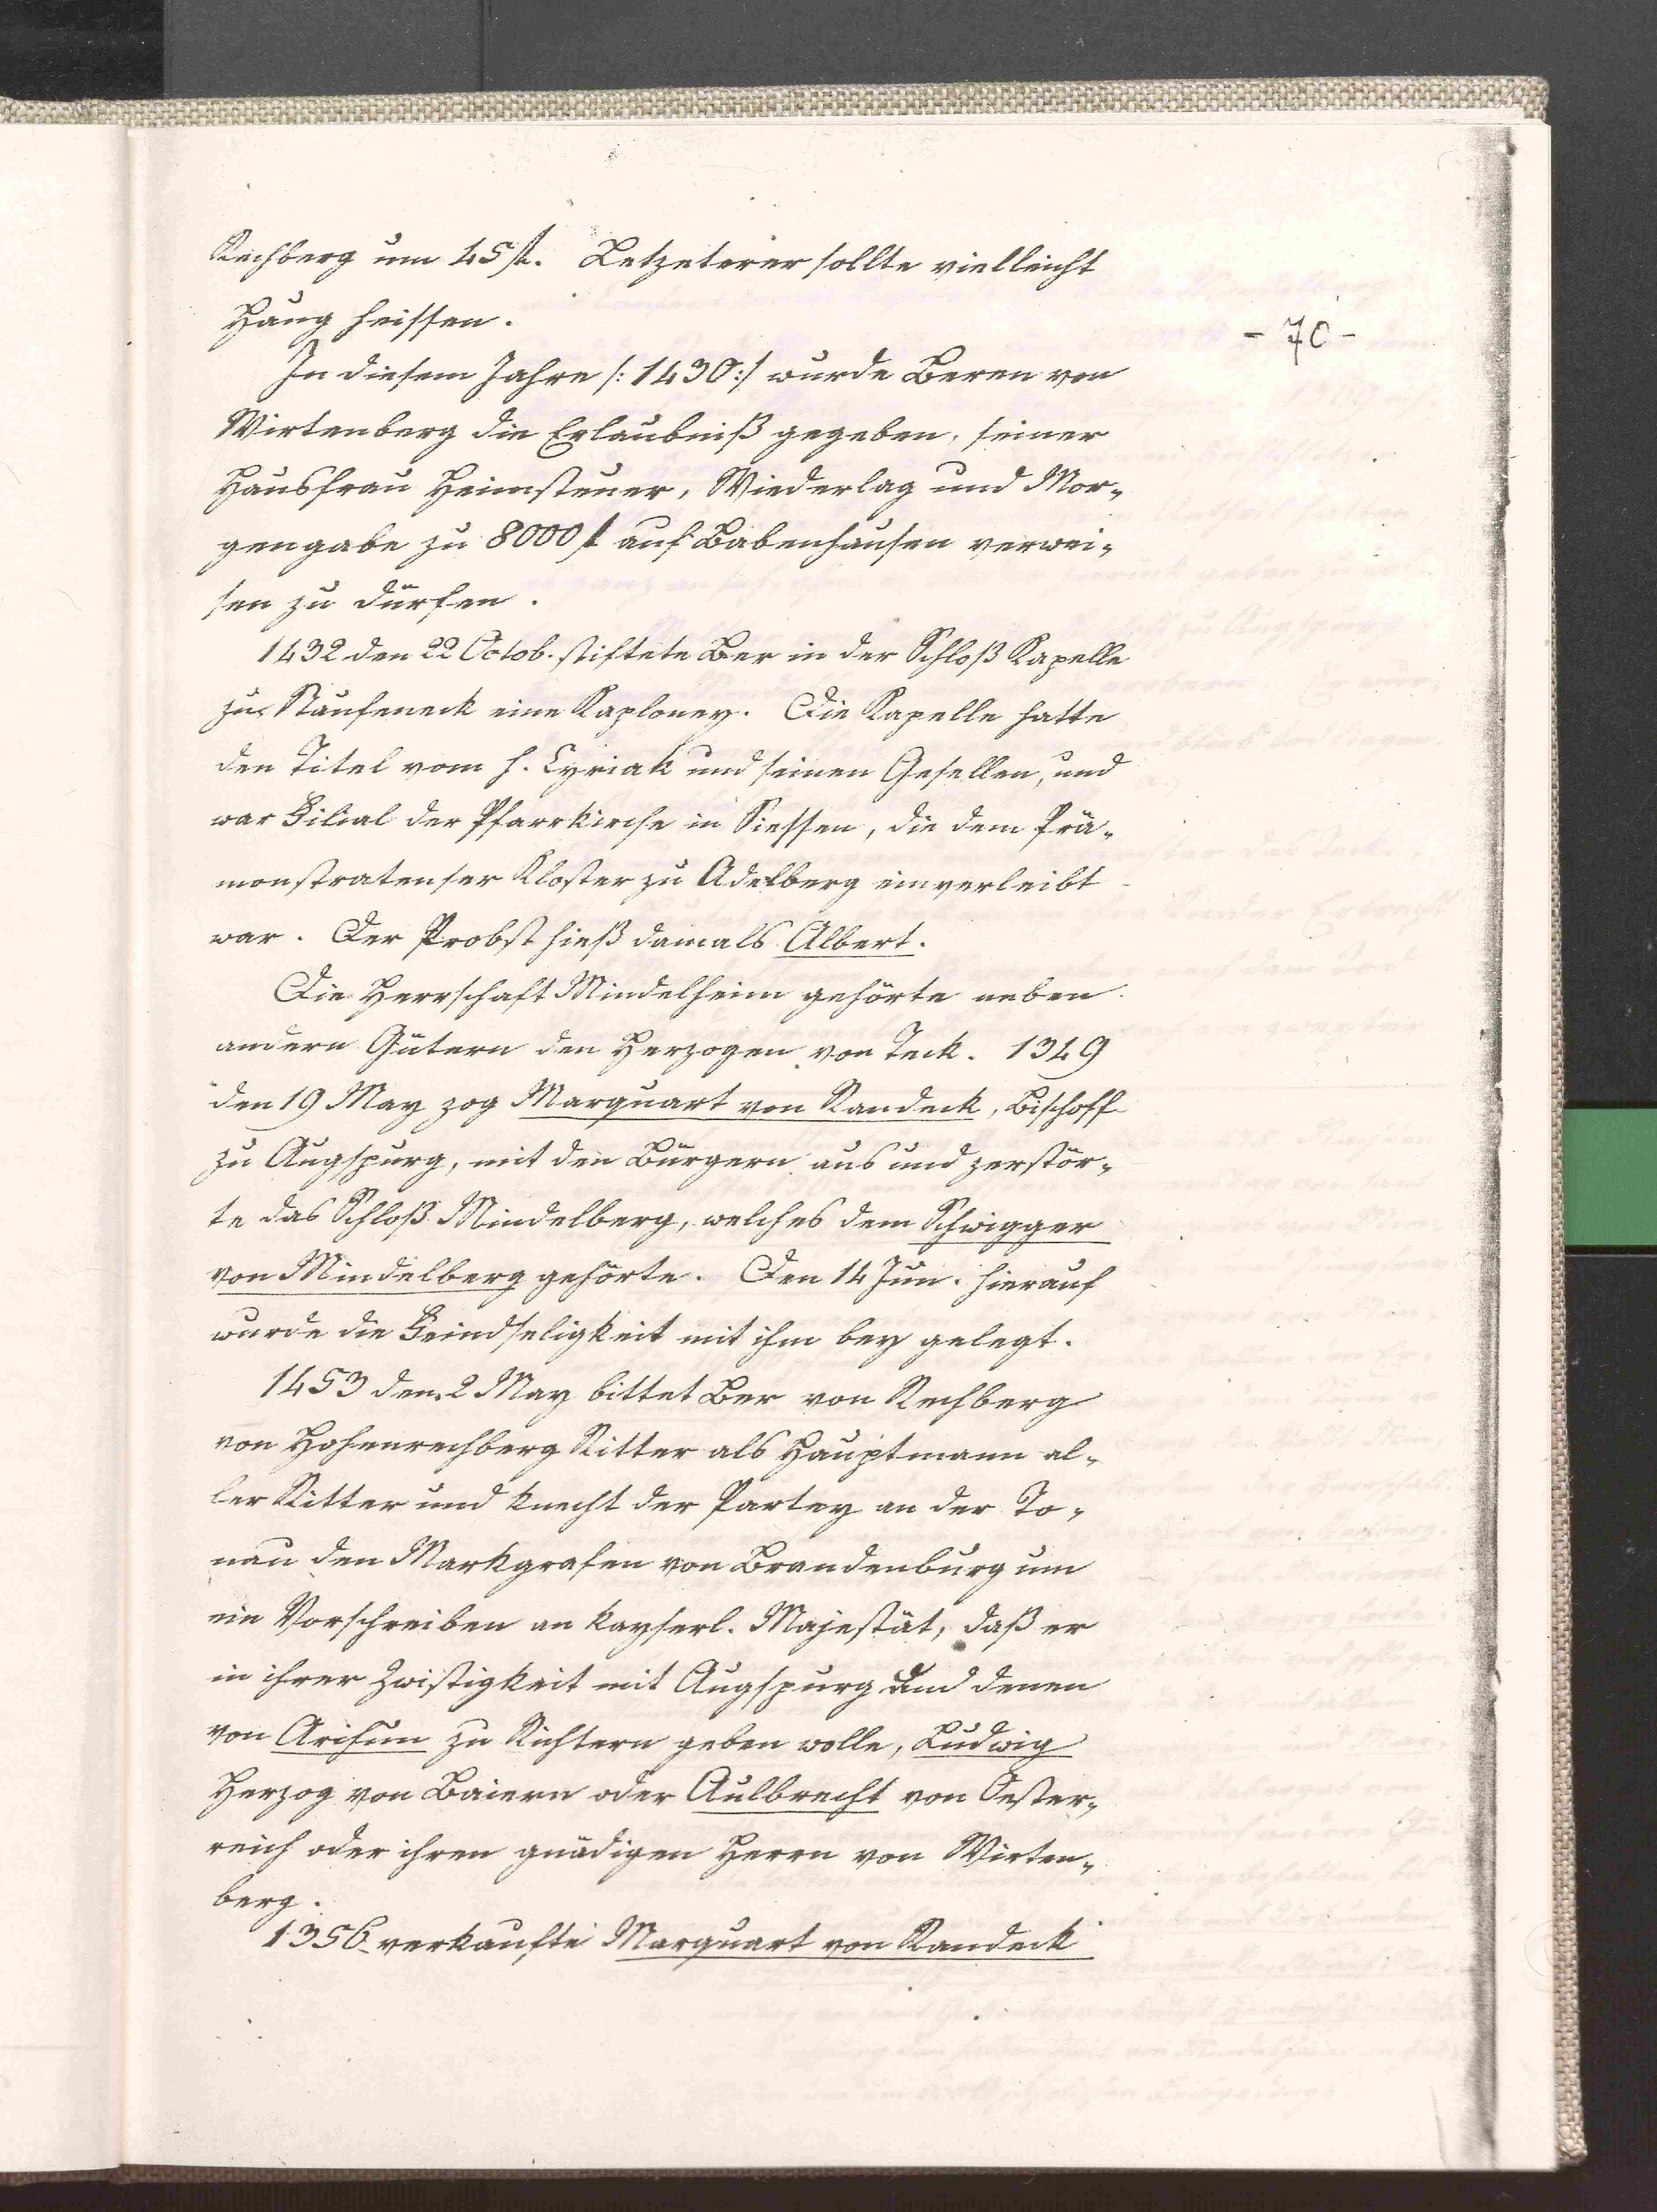 Rechberg um 45 fl. Letzeterer sollte vielleicht
Haug heissen.
- 70 -
In diesem Jahre /: 1430 :/ wurde Beren von
Wirtenberg die Erlaubniß gegeben, seiner
Hausfrau Heimsteuer, Wiederlag und Mor-
gengabe zu 8000 fl auf Babenhausen verwei-
sen zu dürfen.
1432 den 22 Octob. stiftete Ber in der Schloß Kapelle
zu Staufeneck eine Kaploney. Die Kapelle hatte
den Titel vom h. Cyriak und seinen Gesellen, und
war Filial der Pfarrkirche in Siessen, die dem Prä-
monstratenser Kloster zu Adelberg einverleibt
war. Der Probst hieß damals Albert.
Die Herrschaft Mindelheim gehörte neben
andern Gütern den Herzogen von Teck. 1349
den 19 May zog Marquart von Randeck, Bischoff
zu Augspurg, mit den Bürgern aus und zerstör-
te das Schloß Mindelberg, welches dem Schwigger
von Mindelberg gehörte. Den 14 Jun. hierauf
wurde die Feindseligkeit mit ihm bey gelegt.
1453 den 2 May bittet Ber von Rechberg
von Hohenrechberg Ritter als Hauptmann al-
ler Ritter und Knecht der Partey an der To-
nau den Markgrafen von Brandenburg um
ein Vorschreiben an kayserl. Majestät, daß er
in ihrer Zwistigkeit mit Augspurg und denen
von Arisun zu Richtern geben wolle, Ludwig
Herzog von Baiern oder Aulbrecht von Oester-
reich oder ihren gnädigen Herrn von Wirten-
berg.
1356 verkaufte Marquart von Randeck